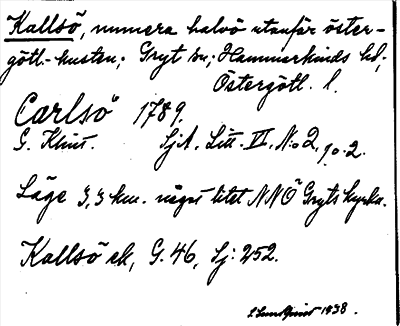 Kallsö, numera halvö utanför öster-
götl.-kusten; Gryt sn; Hammarkinds hd;
Östergötl. l.
Carlsö 1789.
G. Klint. SjA. Litt. II, No 2, 90.2.
Läge 3,3 km. något litet NNÖ Gryts kyrka.
Kallsö ek, G. 46, Sj: 252.
1938.